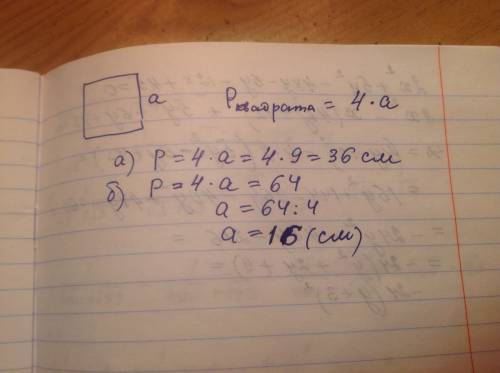 a Pквадрата = 4·a
а) P = 4·a = 4·9 = 36 см
б) P = 4·a = 64
a = 64:4
a = 16 (см)